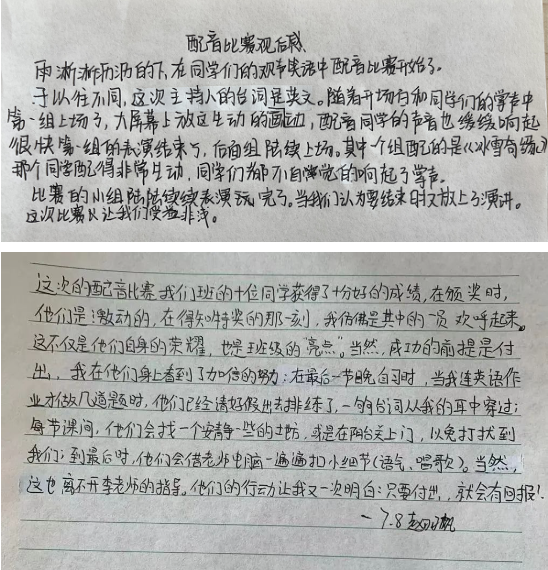 配音比赛观后感
雨淅淅沥沥的下,在同学们的欢声笑语中配音比赛开始了。
于以往不同,这次主持人的台词是英文。随着开场白和同学们的掌声中
第一组上场了,大屏幕上放这生动的画面,配音同学的声音也缓缓响起
很快第一组的表演结束了,后面组陆续上场。其中一个组配的是《冰雪奇缘》
那个同学配得非常生动,同学们都不自觉的响起了掌声。
比赛的小组陆陆续续表演玩完了。当我们认为要结束时又放上了演讲。
这次比赛让我们受益非浅。
这次的配音比赛我们班的十位同学获得了十分好的成绩,在颁奖时,
他们是激动的,在得知特奖的那一刻,我仿佛是其中的一员欢呼起来。
这不仅是他们自身的荣耀,也是班级的“亮点”。当然,成功的前提是付
出,我在他们身上看到了加倍的努力:在最后一节晚自习时,当我连英语作
业才做几道题时,他们已经请好假出去排练了,一句句台词从我的耳中穿过;
每节课间,他们会找一个安静一些的地方,或是在阳台关上门,以免打扰到
我们;到最后时,他们会借老师电脑一遍遍扣小细节(语气、唱歌)。当然,
这也离不开李老师的指导。他们的行动让我又一次明白:只要付出,就会有回报!
—7.8